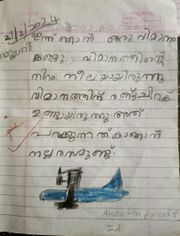 21/2/2024
ഇന്ന് ഞാൻ ഒരു വിമാനം
കണ്ടു. വിമാനത്തിന്റെ
നിറം നീലയായിരുന്നു
വിമാനത്തിന് രണ്ട് ചിറക്
ഉണ്ടായിരുന്നു അത്
പറക്കുന്നത് കാണാൻ
നല്ല രസമുണ്ട്
I A